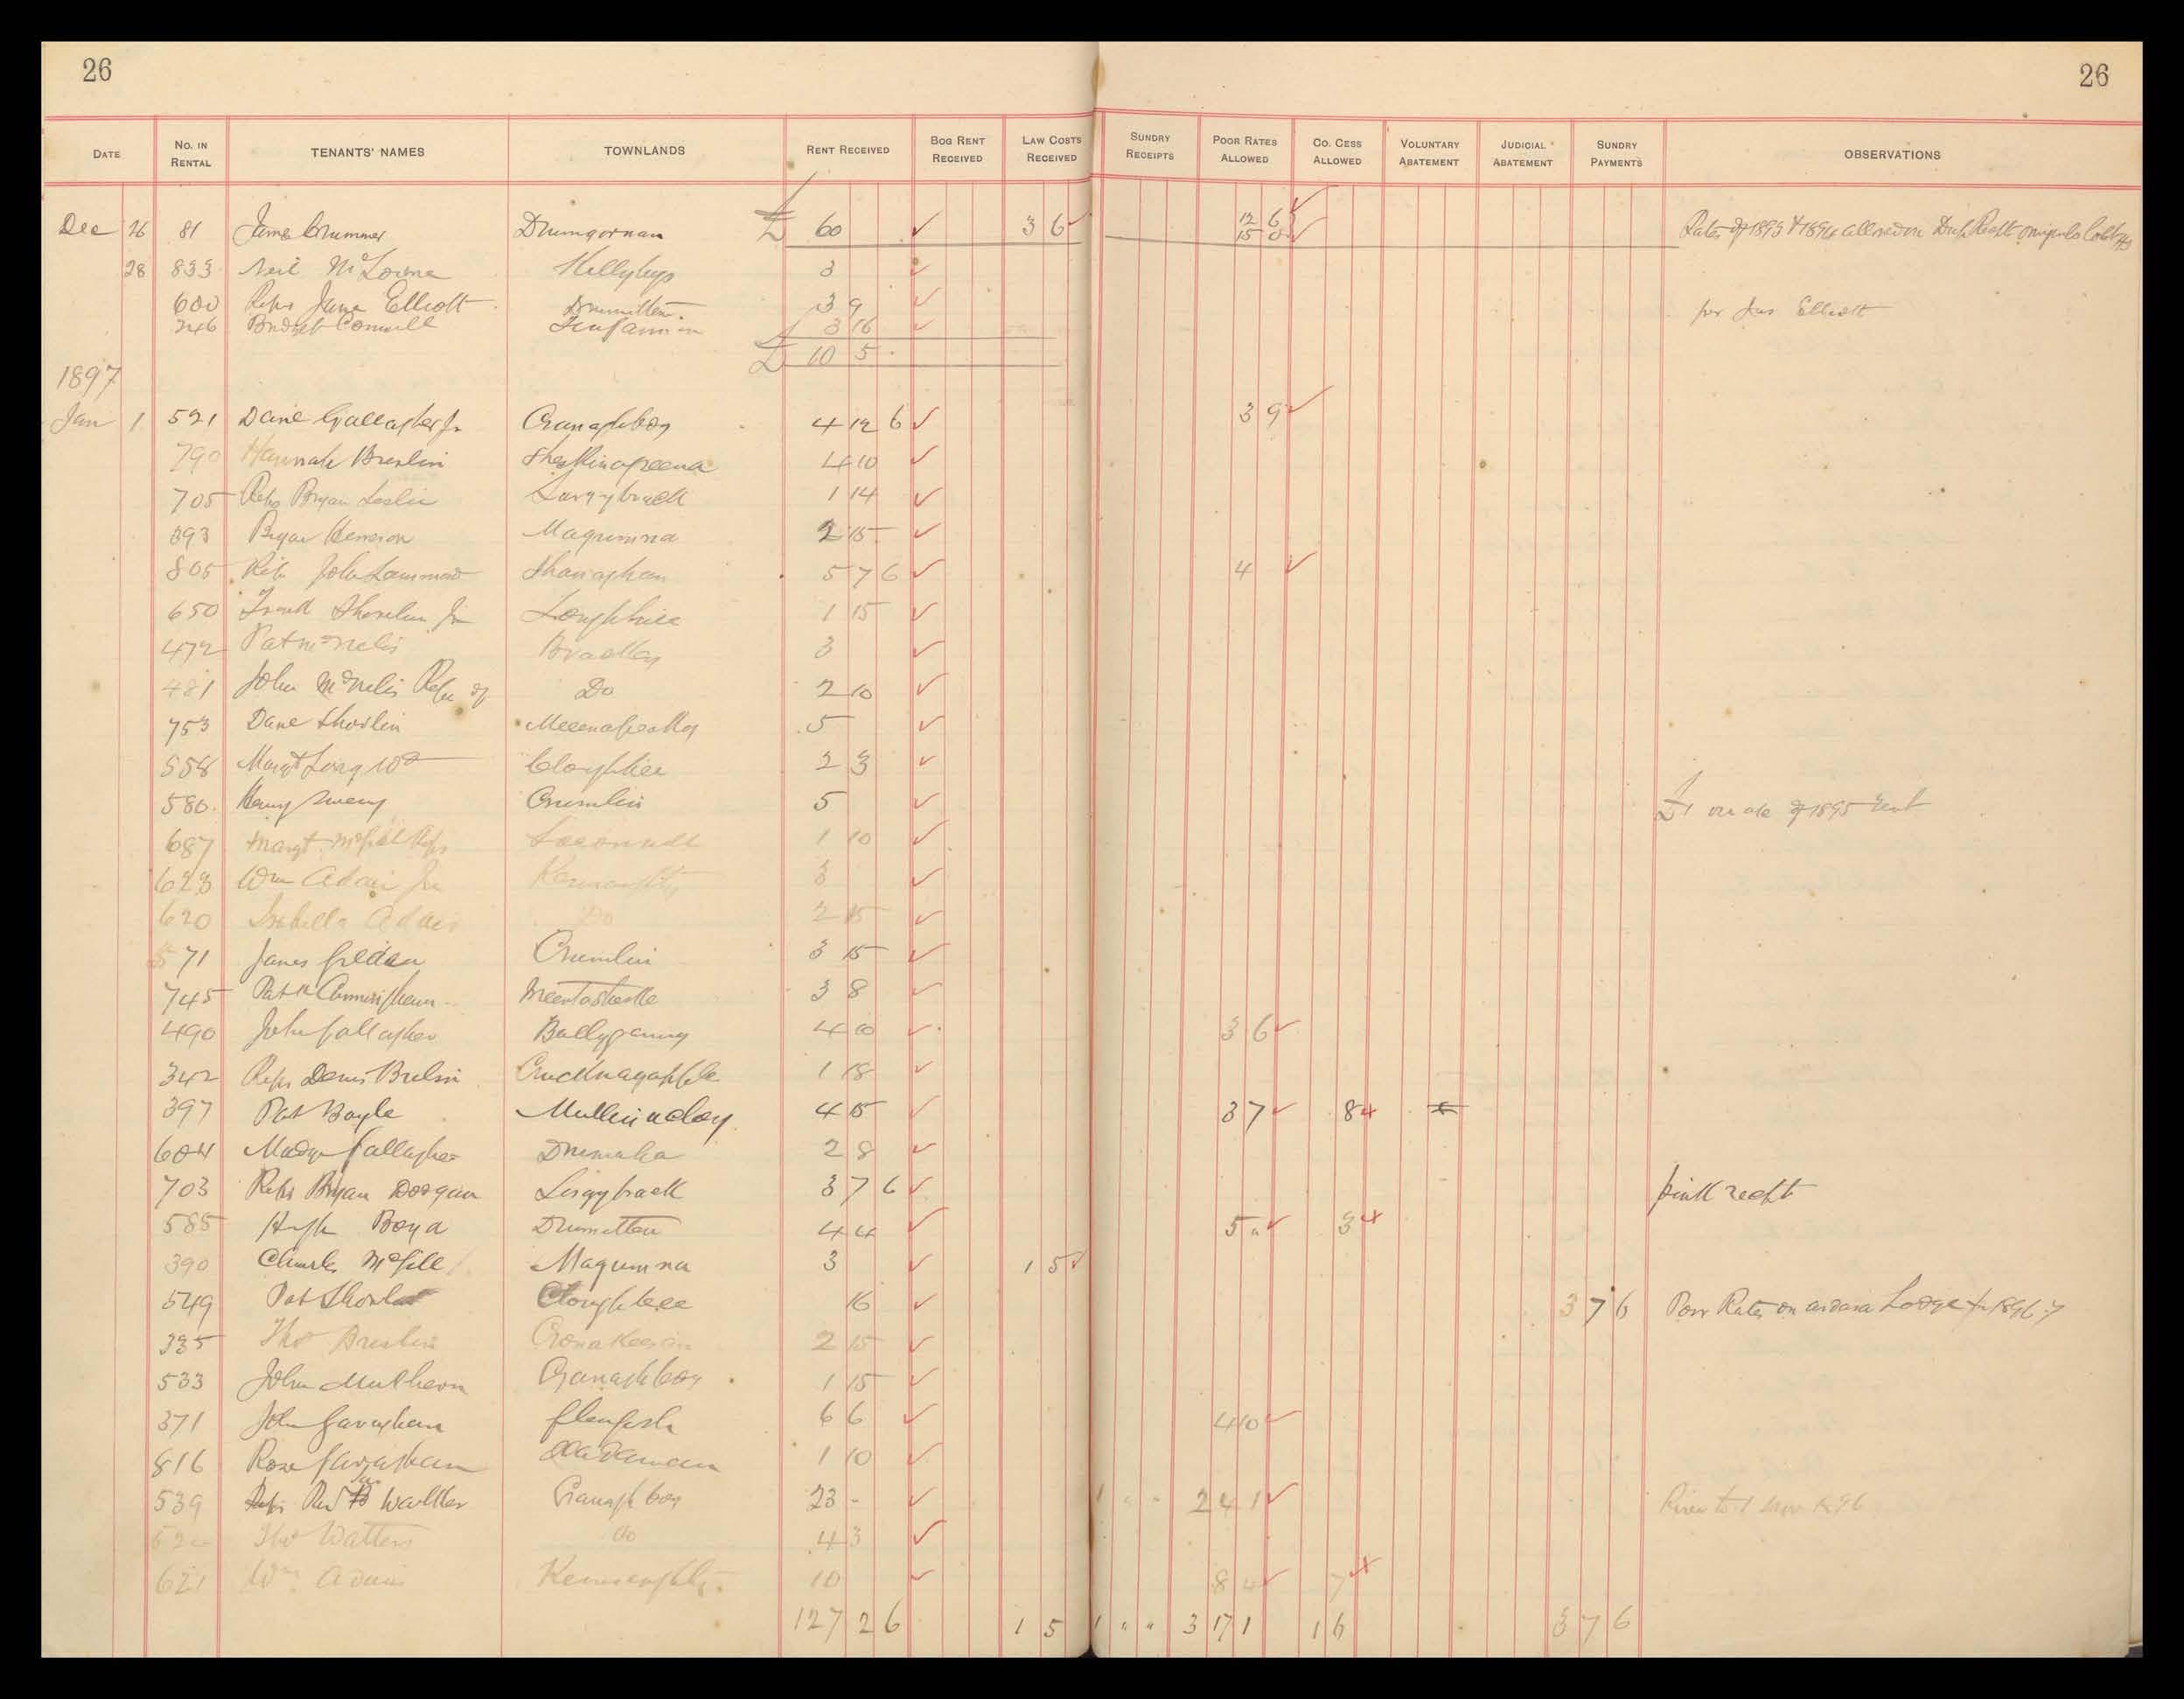 26 26
DATE No. IN RENTAL TENANTS' NAMES TOWNLANDS RENT RECEIVED BOG RENT RECEIVED LAW COSTS RECEIVED SUNDRY RECEIPTS POOR RATES ALLOWED CO. CESS ALLOWED VOLUNTARY ABATEMENT JUDICIAL ABATEMENT SUNDRY PAYMENTS OBSERVATIONS
Dec 26 81 James Crummer Drumgorman £ 60 ✓ 3 6 ✓ 12 6 ✓ 15 0 ✓ Rates of 1893 & 1894 allowed on
28 833 Neil McLoone Killybegs 3 ✓
600 Reps Jane Elliott Drumitten 3 9 ✓ per Jas Elliott
246 Bridget Connell 3 16 ✓
£ 10 5
1897
Jan 1 521 Danl Gallagher Jr Cranaghboy 4 12 6 ✓ 3 9 ✓
790 Hannah Breslin Sheskinagreena 4 10 ✓
705 Reps Bryan Leslie Largybrack 1 14 ✓
393 Bryan Kennson Magumna 2 15 ✓
805 Reps John Shanaghan 5 7 6 ✓ 4 ✓
650 Frank Shovelin Jr Loughhill 1 15 ✓
472 Pat McNelis Brackley 3 ✓
481 John McNelis Reps of Do 2 10 ✓
753 Dane Shovlin 5 ✓
558 Margt Long Wd Cloughlea 2 3 ✓
580 Henry Sweeny Crumlin 5 ✓ £1 on a/c of 1895 rent
687 Margt McGill Reps 1 10 ✓
623 Wm Adair Jr Kennaughty 3 ✓
620 Isabella Adair Do 2 15 ✓
571 James Gildea Crumlin 3 15 ✓
745 Patk Cunningham Meentashaske 3 8 ✓
490 John Gallagher Ballyganny 4 10 ✓ 3 6 ✓
342 Reps Denis Breslin Crucknagapple 1 18 ✓
397 Pat Boyle Mullinacloy 4 15 ✓ 3 7 ✓ 8 4
604 Madge Gallagher Drumaha 2 8 ✓
703 Reps Bryan Dorrian Largybrack 3 7 6 ✓ pink recpt
585 Hugh Boyd Drumitten 4 4 ✓ 5 " ✓ 3
390 Charles McGill Magumna 3 ✓ 1 5 ✓
549 Pat Cloughlea 16 ✓ 3 7 6 Poor Rates on Ardara Lodge for 1896-7
335 Thos Breslin Cronakeeran 2 15 ✓
533 John Mulhern Cranaghboy 1 15 ✓
371 John Gavaghan Glengesh 6 6 ✓ 4 10 ✓
816 Rose Gavaghan 1 10 ✓
539 Reps Revd Walker Cranaghboy 23 - ✓ 1 " " 2 4 1 ✓ River to 1 Nov 1896
Thos Watters do 4 3 ✓
621 Wm Adair Kennaughty 10 ✓ 8 4 ✓ 7
127 2 6 1 5 1 " " 3 17 1 1 6 3 7 6